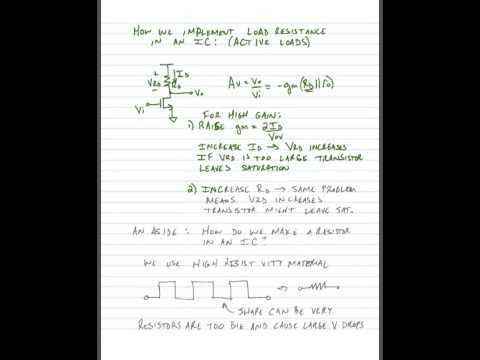 HOW WE IMPLEMENT LOAD RESISTANCE
IN AN IC: (ACTIVE LOADS)
+ VRD - RD ID
Vo
Vi
Av = Vo/Vi = -gm(RD||ro)
FOR HIGH GAIN:
1) RAISE gm = 2ID/VOV
INCREASE ID → VRD INCREASES
IF VRD IS TOO LARGE TRANSISTOR
LEAVES SATURATION
2) INCREASE RD → SAME PROBLEM
MEANS VRD INCREASES
TRANSISTOR MIGHT LEAVE SAT.
AN ASIDE: HOW DO WE MAKE A RESISTOR
IN AN IC?
WE USE HIGH RESISTIVITY MATERIAL
SHAPE CAN BE VERY
RESISTORS ARE TOO BIG AND CAUSE LARGE V DROPS